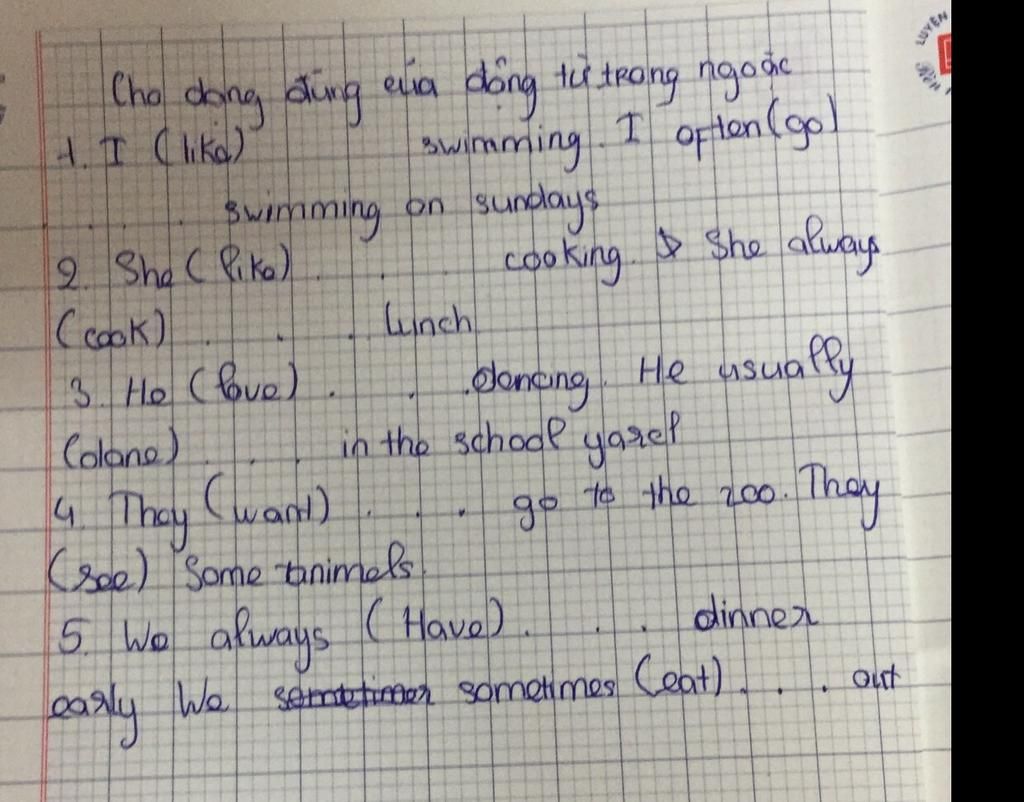 Cho dạng đúng của động từ trong ngoặc
1. I (like) swimming. I often (go)
. . . swimming on sundays
2. She (like) . . cooking. She always
(cook) . . . lunch
3. He (love) . . . dancing. He usually
(dane) . . . in the school yard
4. They (want) . . . go to the zoo. They
(see) some animels.
5. We always (Have) . . . dinner
early We sometimes (eat) . . . out
LUYỆN